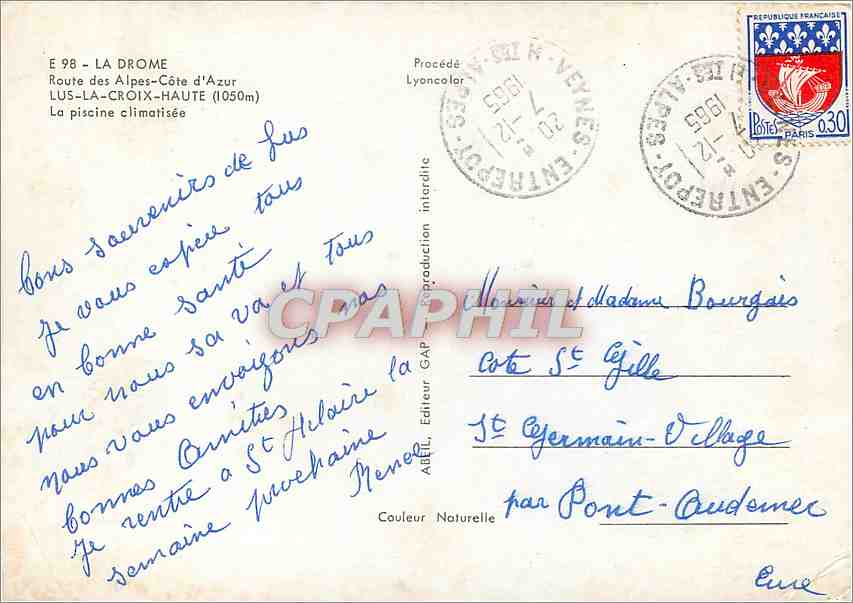 E 98 - LA DROME
Route des Alpes-Côte d'Azur
LUS-LA-CROIX-HAUTE (1050m)
La piscine climatisée
Procédé
Lyoncolor
bons souvenirs de Lus
je vous espère tous
en bonne santé
pour nous sa va et tous
nous vous envoigons nos
bonnes Amitiés
je rentre a St Hilaire la
semaine prochaine
ABEIL, Editeur GAP - Reproduction interdite
Couleur Naturelle
VEYNES-ENTREPOT - HTES-ALPES
20 H
7-12
1965
VEYNES-ENTREPOT - HTES-ALPES
20 H
7-12
1965
REPUBLIQUE FRANCAISE
POSTES
PARIS
0,30
Monsieur et Madame Bourgais
Cote St Gille
St Germain-Village
par Pont-Audemer
Eure
CPAPHIL